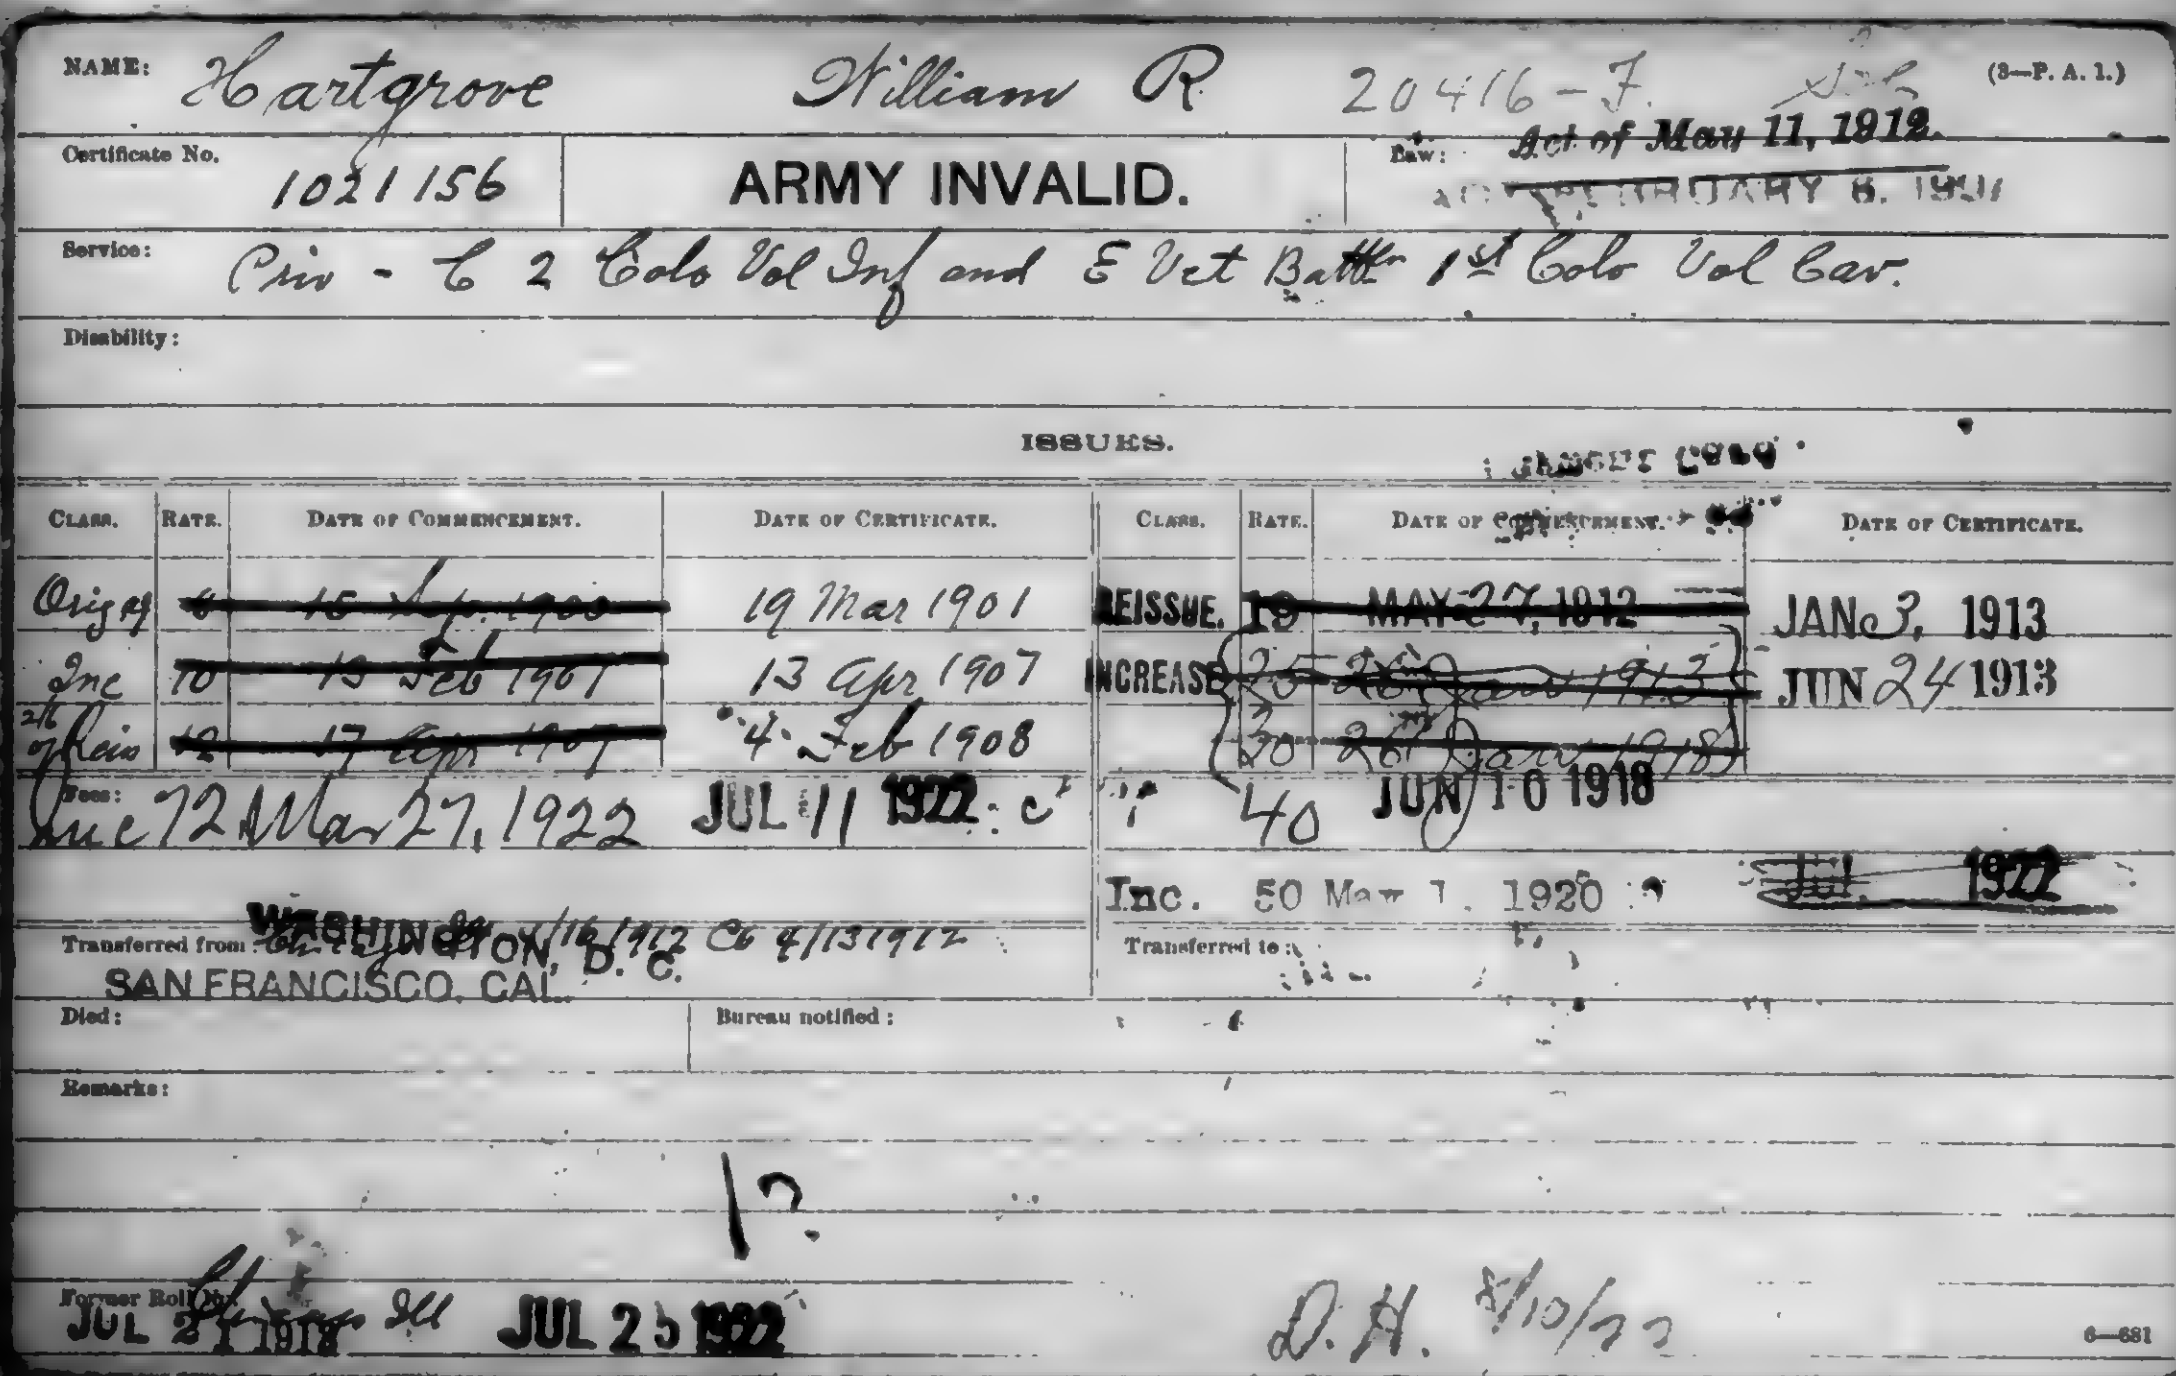 NAME: Hartgrove William R 20416-F. (3—P. A. 1.)
Certificate No. 1021156 ARMY INVALID. Law: Act of May 11, 1912.
FEBRUARY 6, 19
Service: Priv - C 2 Colo Vol Inf and E Vet Battln 1st Colo Vol Cav.
Disability:
ISSUES.
CLASS. RATE. DATE OF COMMENCEMENT. DATE OF CERTIFICATE. CLASS. RATE. DATE OF COMMENCEMENT. DATE OF CERTIFICATE.
Orig 15 Sep. 1900 19 Mar 1901 REISSUE. 19 MAY 27, 1912 JAN 3, 1913
Inc 10 13 Feb 1907 13 Apr 1907 INCREASE 25 26 Jany 1913 JUN 24 1913
Reis 12 17 Apr 1907 4 Feb 1908 30 26 Jany 1918
Fees: Inc 72 Mar 27, 1922 JUL 11 1922 40 JUN 10 1918
Inc. 50 May 1, 1920 JUL 1922
Transferred from: WASHINGTON, D. C. 4/16/1912 C6 4/13 1912 Transferred to:
SAN FRANCISCO, CAL.
Died: Bureau notified:
Remarks:
Former Roll No. Chicago Ill
JUL 21 1918 JUL 25 1922 D. H. 8/10/22 6—681